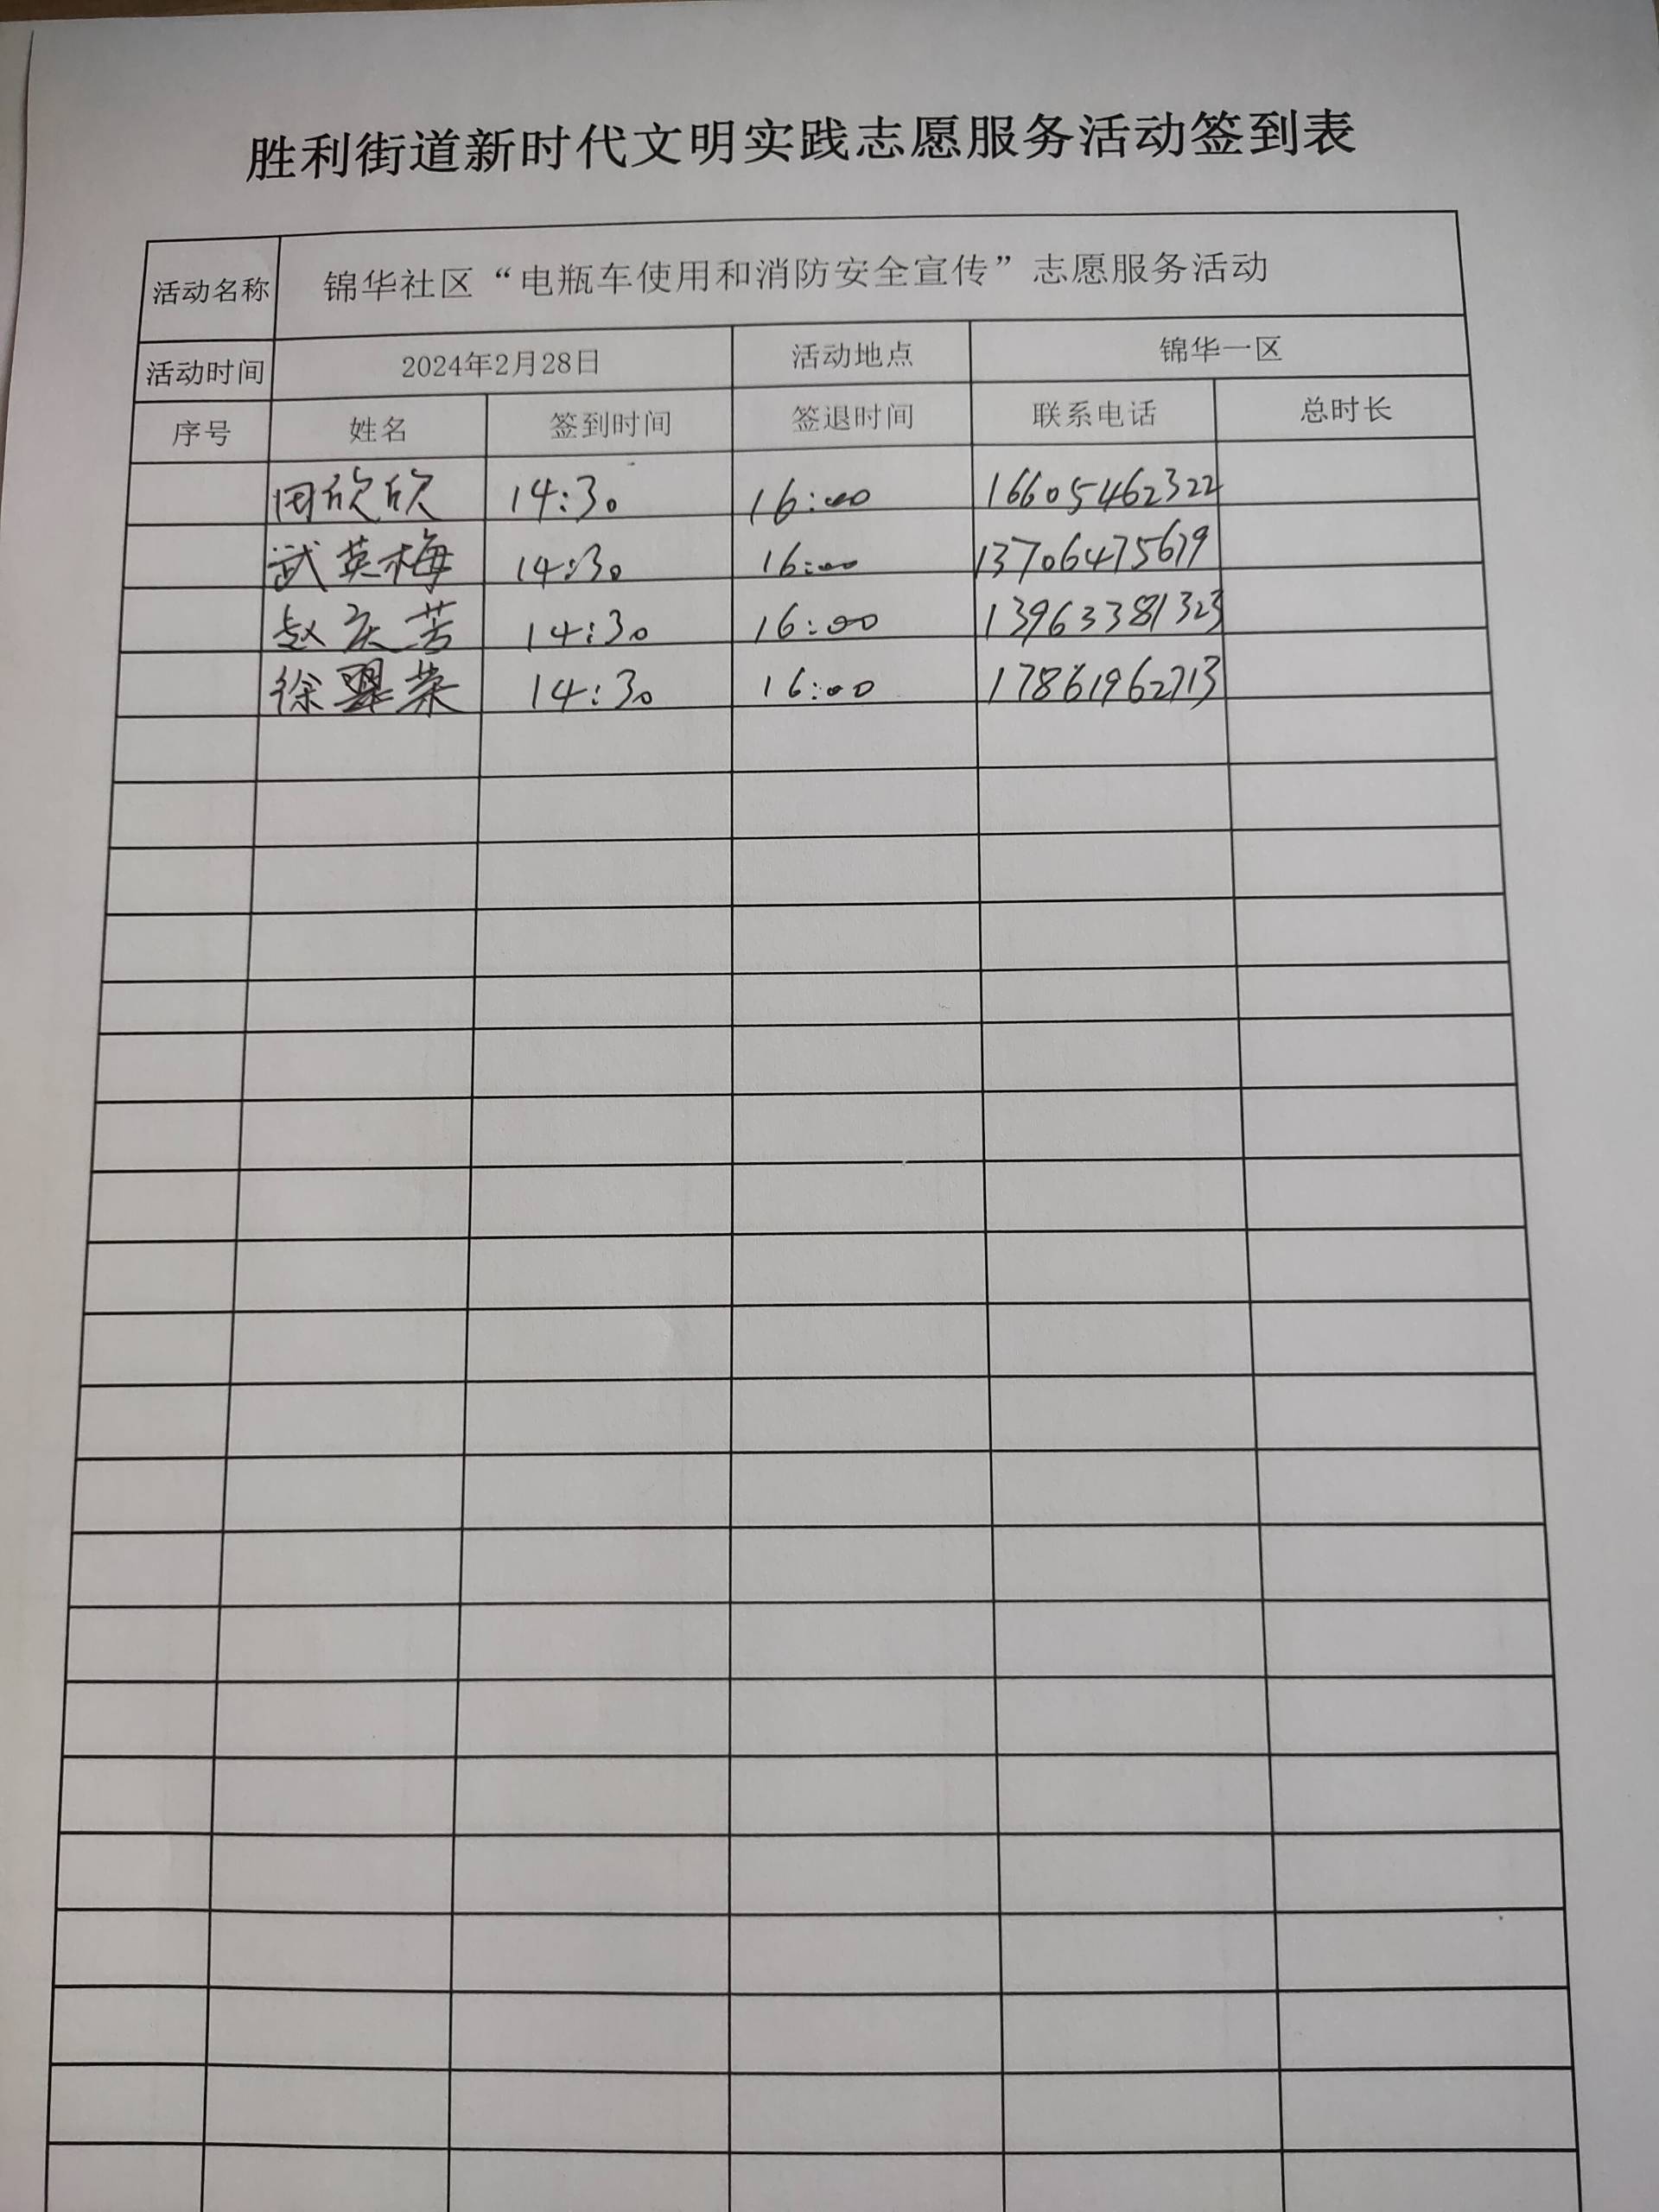 胜利街道新时代文明实践志愿服务活动签到表
活动名称 锦华社区“电瓶车使用和消防安全宣传”志愿服务活动
活动时间 2024年2月28日 活动地点 锦华一区
序号 姓名 签到时间 签退时间 联系电话 总时长
田欣欣 14:30 16:00 16605462322
武英梅 14:30 16:00 13706475679
赵庆芳 14:30 16:00 13963381323
徐翠荣 14:30 16:00 17861962713